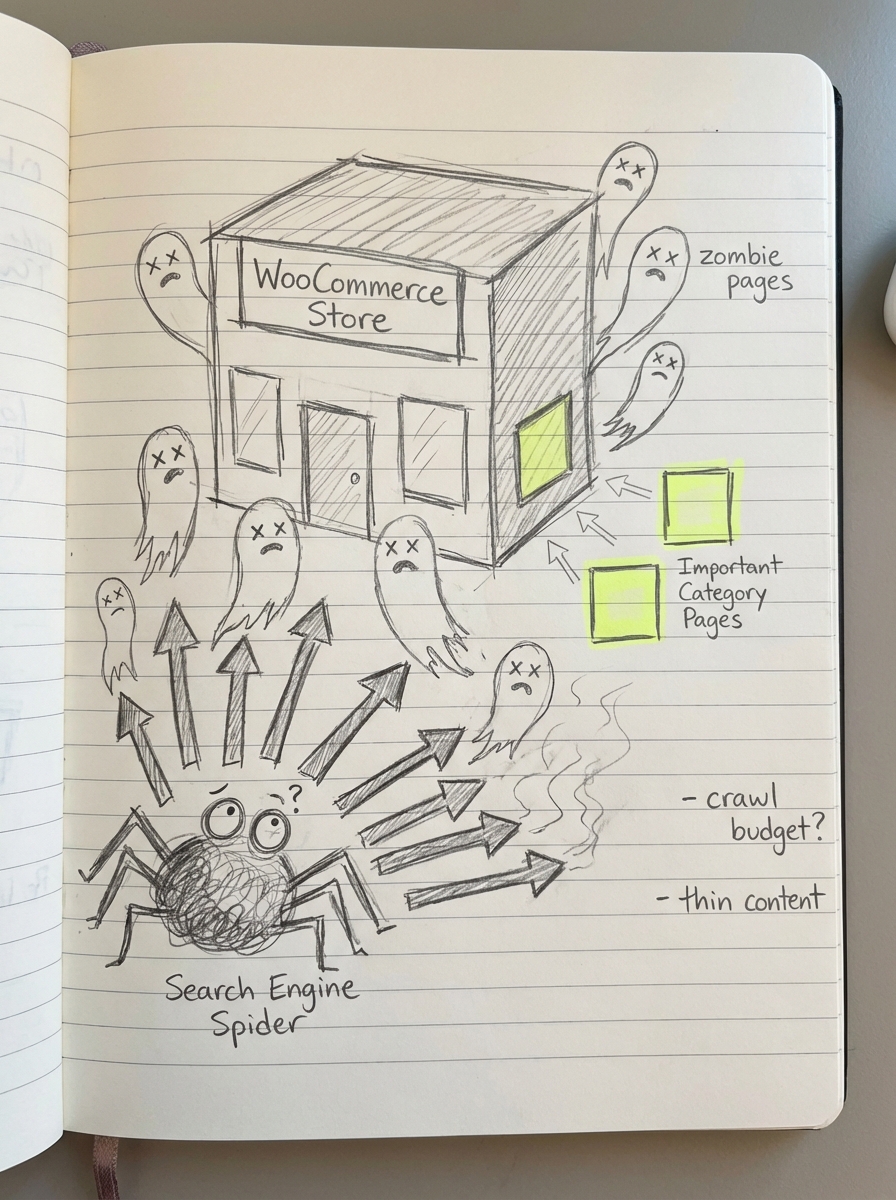 WooCommerce
Store
zombie
pages
Important
Category
Pages
?
- crawl
budget?
- thin content
Search Engine
Spider